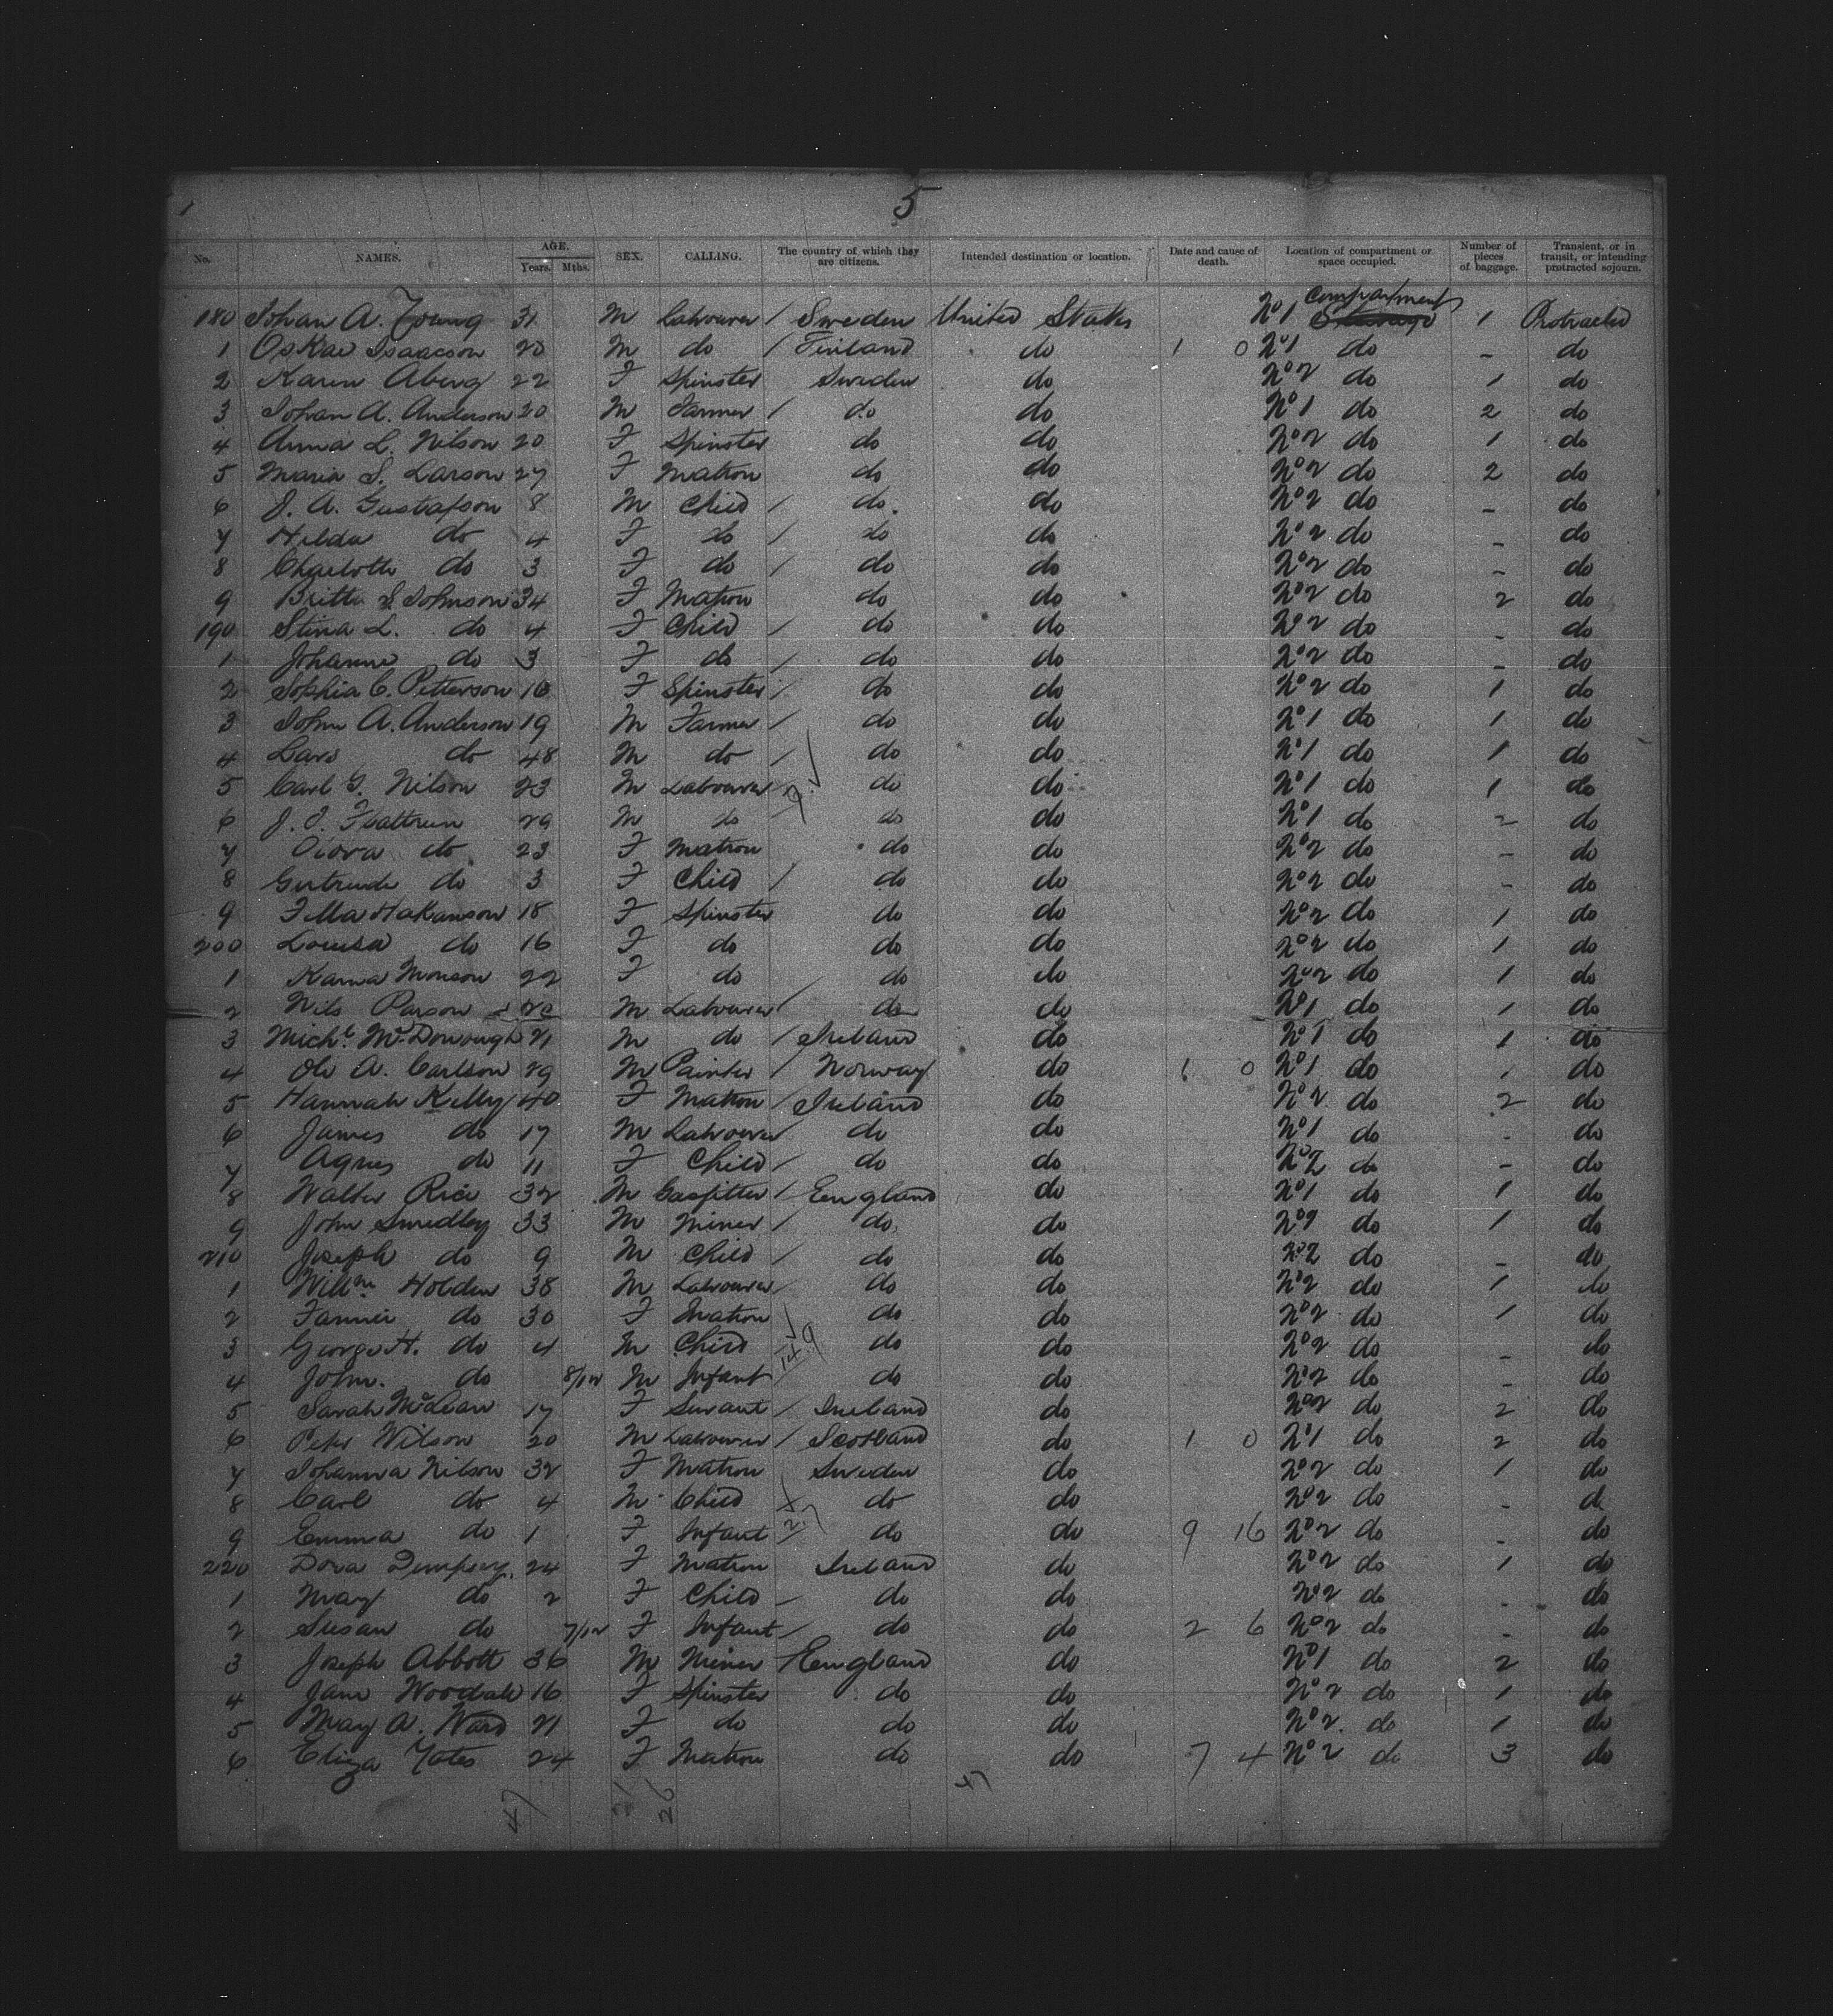 5
No. NAMES. AGE. Years. Mths. SEX. CALLING. The country of which they are citizens. Intended destination or location. Date and cause of death. Location of compartment or space occupied. Number of pieces of baggage. Transient, or in transit, or intending protracted sojourn.
180 Johan A. Young 31 M Labourer / Sweden United States No 1 Compartment 1 Protracted
1 Oskar Isaacson 20 M do / Finland do 1 0 No 1 do - do
2 Karin Aberg 22 F Spinster Sweden do No 2 do 1 do
3 Johan A. Anderson 20 M Farmer / do do No 1 do 2 do
4 Anna L. Nilson 20 F Spinster do do No 2 do 1 do
5 Maria S. Larson 27 F Matron do do No 2 do 2 do
6 J. A. Gustafson 8 M Child / do. do No 2 do - do
7 Hilda do 4 F do / do do No 2 do - do
8 Charlotte do 3 F do / do do No 2 do - do
9 Britta S. Johnson 34 F Matron do do No 2 do 2 do
190 Stina L. do 4 F Child / do do No 2 do - do
1 Johanne do 3 F do / do do No 2 do - do
2 Sophia C. Petterson 16 F Spinster / do do No 2 do 1 do
3 John A. Anderson 19 M Farmer / do do No 1 do 1 do
4 Lars do 48 M do / do do No 1 do 1 do
5 Carl G. Nilson 23 M Labourer / do do No 1 do 1 do
6 J. O. 29 M do do do No 1 do 2 do
7 do 23 F Matron do do No 2 do - do
8 Gertrude do 3 F Child / do do No 2 do - do
9 Hakanson 18 F Spinster do do No 2 do 1 do
200 Louisa do 16 F do do do No 2 do 1 do
1 Karna Monson 22 F do do do No 2 do 1 do
2 Nils Parson M Labourer / do do No 1 do 1 do
3 Michl. McDonough 21 M do / Ireland do No 1 do 1 do
4 Ole A. Carlson 29 M Painter / Norway do 1 0 No 1 do 1 do
5 Hannah Kelly 40 F Matron / Ireland do No 2 do 2 do
6 James do 17 M Labourer / do do No 1 do - do
7 Agnes do 11 F Child / do do No 2 do - do
8 Walter Rice 32 M Gasfitter / England do No 1 do 1 do
9 John Smedley 33 M Miner / do do No 2 do 1 do
210 Joseph do 9 M Child / do do No 2 do - do
1 Willm Holden 38 M Labourer / do do No 2 do 1 do
2 Fannie do 30 F Matron do do No 2 do 1 do
3 George H. do 4 M Child do do No 2 do - do
4 John. do 8/12 M Infant do do No 2 do - do
5 Sarah McLean 17 F Servant / Ireland do No 2 do 2 do
6 Peter Wilson 20 M Labourer / Scotland do 1 0 No 1 do 2 do
7 Johanna Nilson 32 F Matron Sweden do No 2 do 1 do
8 Carl do 4 M Child do do No 2 do - do
9 Emma do 1 F Infant do do 9 16 No 2 do - do
220 Dora Dempsey. 24 F Matron Ireland do No 2 do 1 do
1 May do 2 F Child - do do No 2 do - do
2 Susan do 7/12 F Infant / do do 2 6 No 2 do - do
3 Joseph Abbott 36 M Miner / England do No 1 do 2 do
4 Jane Woodale 16 F Spinster do do No 2 do 1 do
5 May A. Ward 21 F do do do No 2. do 1 do
6 Eliza Yates 24 F Matron do do 7 4 No 2 do 3 do
47 21 26 47